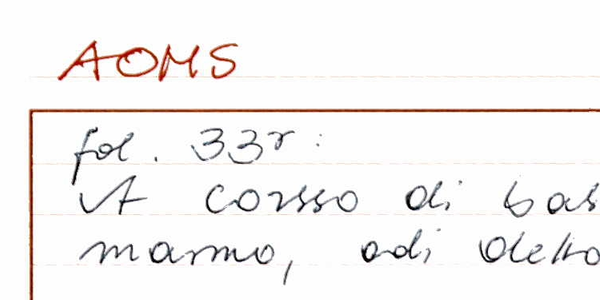 AOMS
fol. 33r:
A corsso di bas
marmo, adi detto